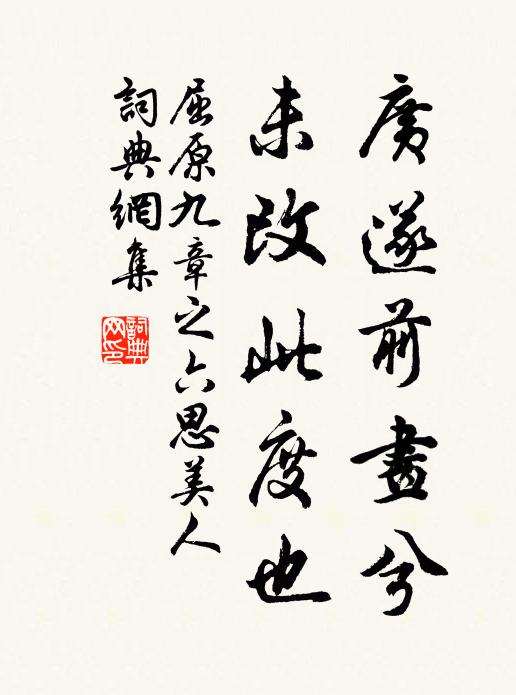 廣遂前畫兮
未改此度也
屈原九章之六思美人
詞典網集
詞典网印